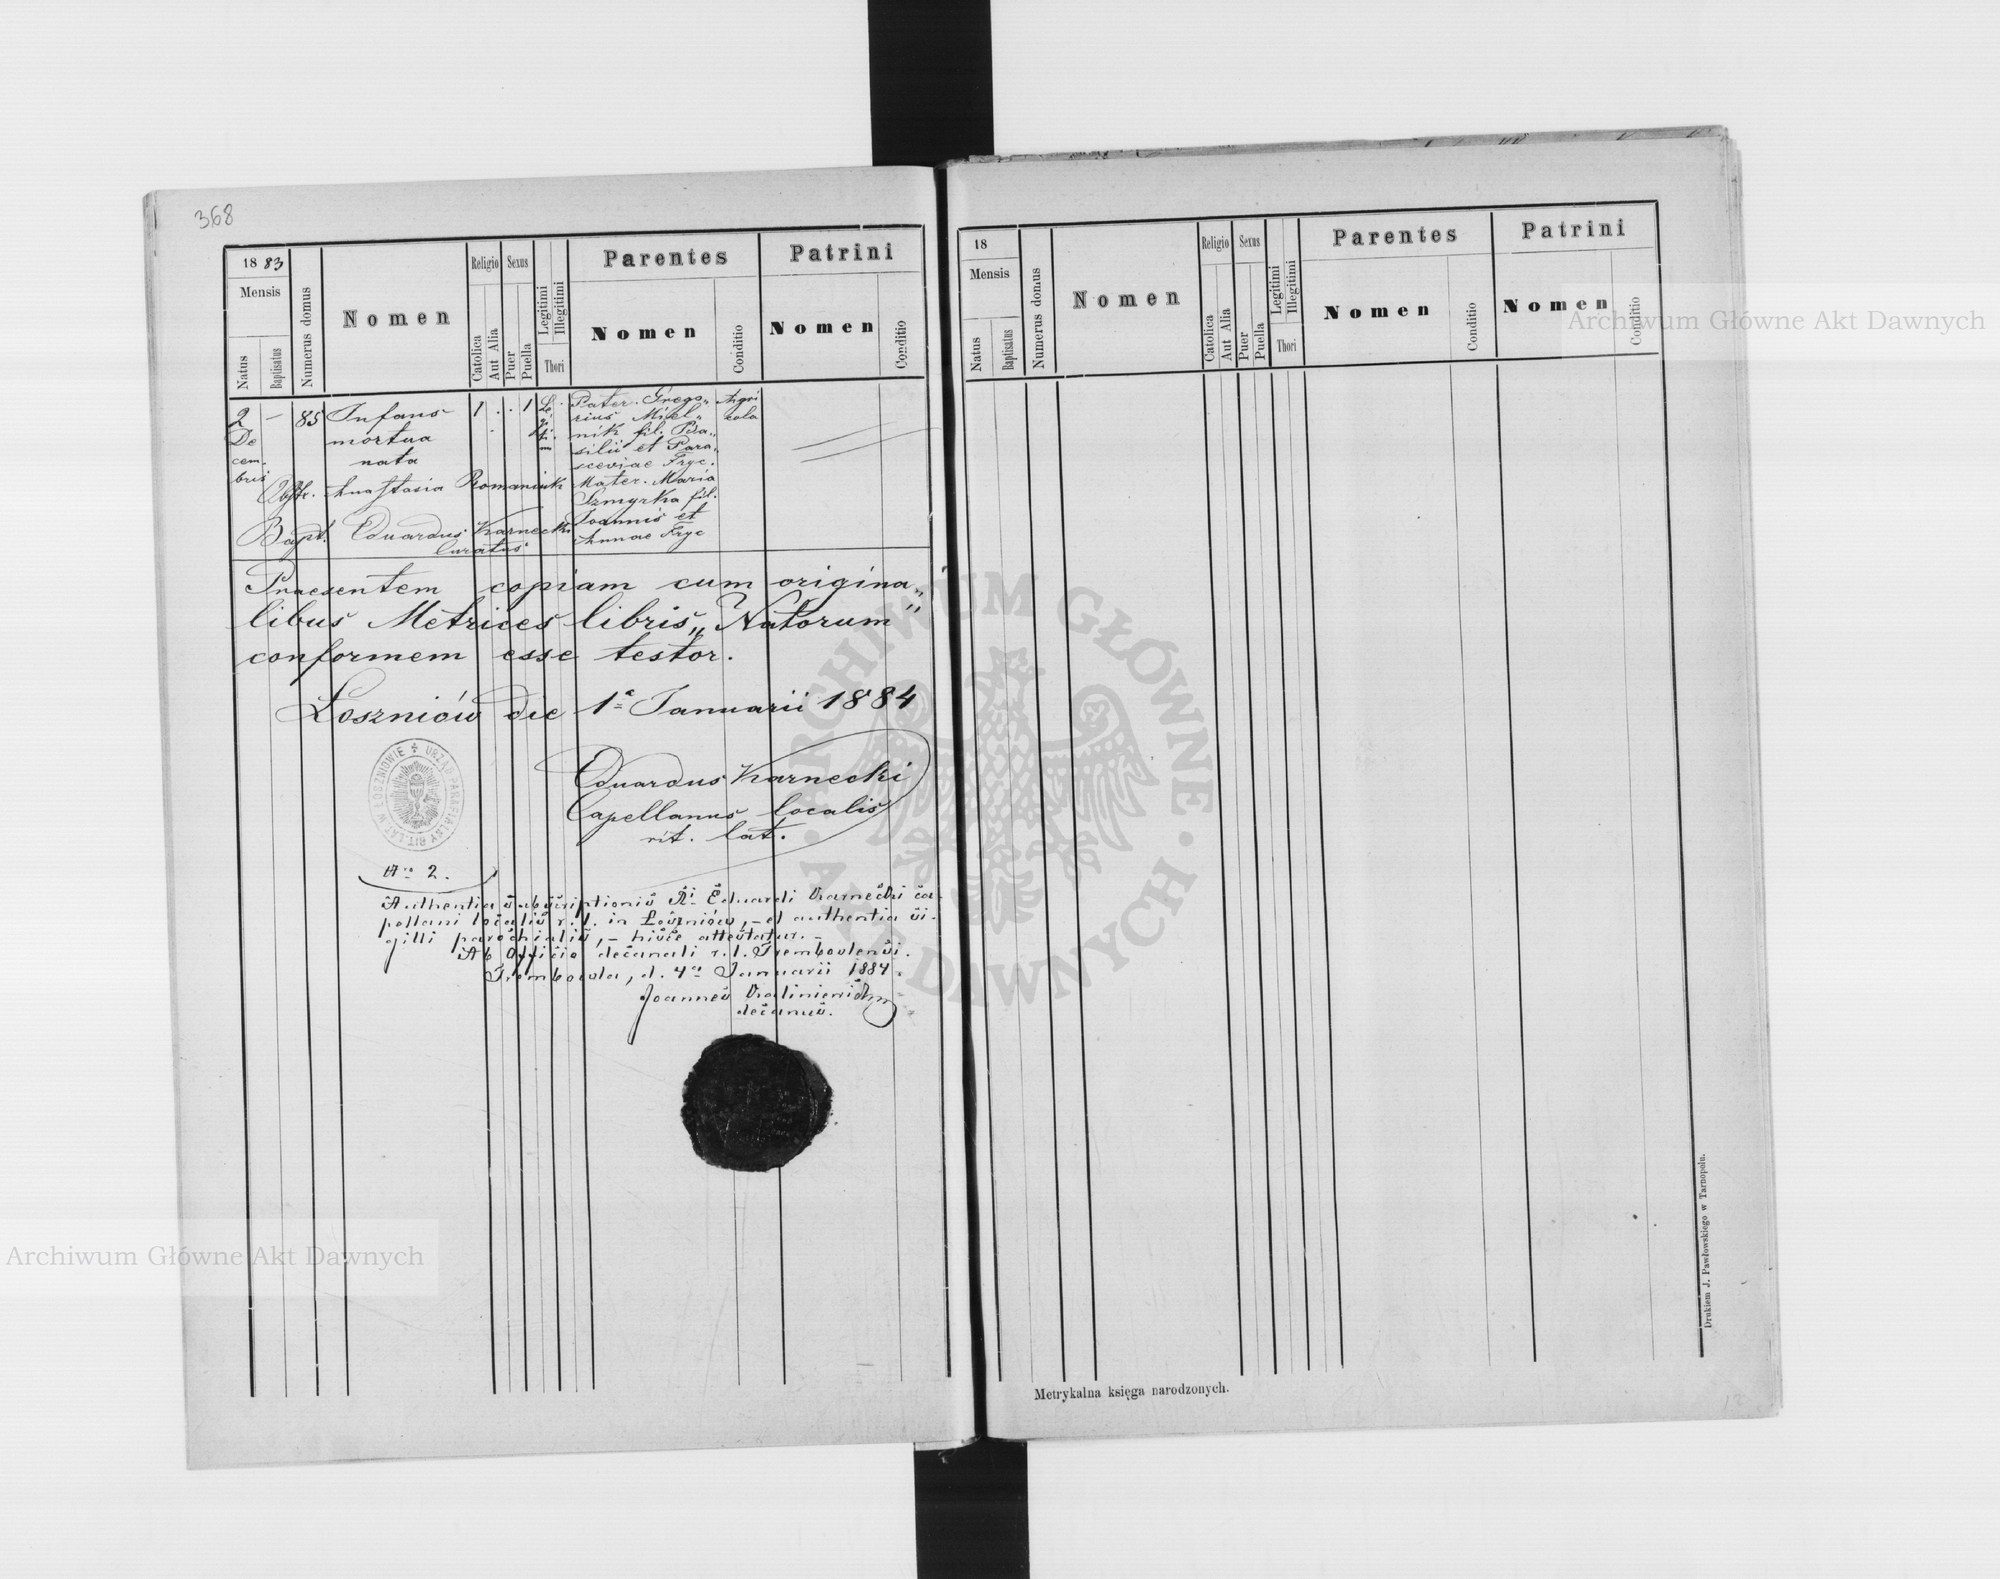 368
18 83
Mensis
Natus
Baptisatus
Numerus domus
Nomen
Religio
Catolica
Aut Alia
Sexus
Puer
Puella
Legitimi
Illegitimi
Thori
Parentes
Nomen
Conditio
Patrini
Nomen
Conditio
2
De
cem.
bris
—
85
Infans
mortua
nata
1 . . 1
Le.
gi.
ti.
m
Pater. Grego„
rius Miel„
nik fil. Ba„
silii et Para„
sceviae Fryc.
Mater. Maria
Szmyrka fil.
Joannis et
Annae Fryc
Agri
cola
Obste. Anastasia Romaniuk
Bapt. Eduardus Karnecki
Curatus
Praesentem copiam cum origina„
libus Metrices libris „Natorum”
conformem esse testor.
Łoszniów die 1ª Januarii 1884
URZĄD PARAFIALNY RIT. LAT. W ŁOSZNIOWIE
Eduardus Karnecki
Capellanus localis
rit. lat.
Nro 2.
Authentia subscriptionis Ri Eduardi Karnecki ca-
pellani localis r. l. in Łoszniów, – et authentia si-
gilli parochialis, – hisce attestatur. –
Ab Officio decanali r. l. Trembovlensi.
Trembowla, d. 4ta Januarii 1884.
Joannes
decanus.
18
Mensis
Natus
Baptisatus
Numerus domus
Nomen
Religio
Catolica
Aut Alia
Sexus
Puer
Puella
Legitimi
Illegitimi
Thori
Parentes
Nomen
Conditio
Patrini
Nomen
Conditio
Metrykalna księga narodzonych.
Drukiem J. Pawłowskiego w Tarnopolu.
Archiwum Główne Akt Dawnych
Archiwum Główne Akt Dawnych
ARCHIWUM GŁÓWNE · AKT DAWNYCH ·